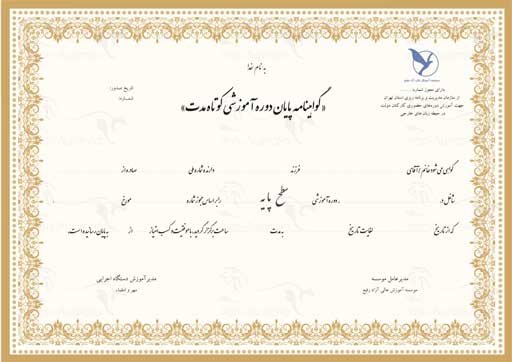 به نام خدا
موسسه آموزش عالی آزاد رفیع
دارای مجوز شماره ............
از سازمان مدیریت و برنامه ریزی استان تهران
جهت آموزش دوره‌های حضوری کارکنان دولت
در حیطه زبان های خارجی
تاریخ صدور:
شماره:
«گواهینامه پایان دوره آموزشی کوتاه مدت»
گواهی می شود خانم / آقای فرزند دارنده شماره ملی صادره از
شاغل در ، دوره آموزشی سطح پایه را بر اساس مجوز شماره مورخ
که از تاریخ لغایت تاریخ به مدت ساعت برگزار گردید، با موفقیت و کسب امتیاز از به پایان رسانیده است.
مدیر عامل موسسه
موسسه آموزش عالی آزاد رفیع
مدیر آموزش دستگاه اجرایی
مهر و امضاء